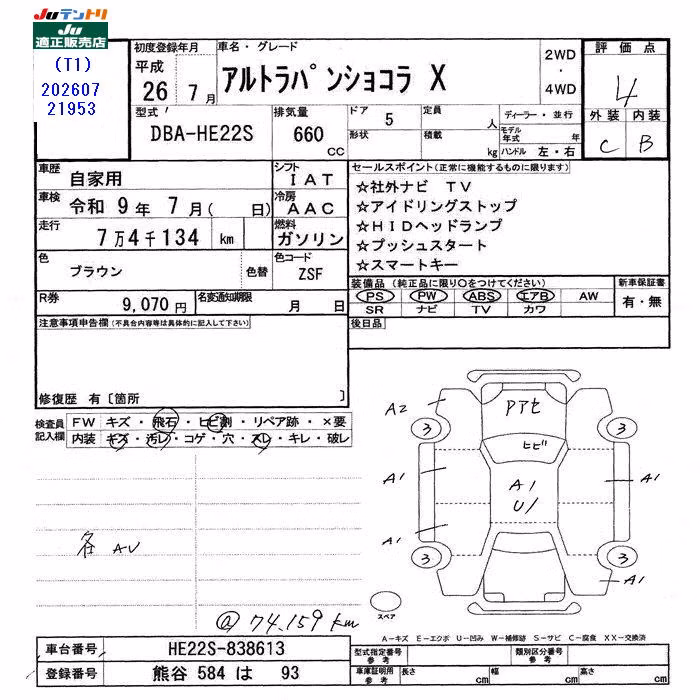 JUテントリ
JU
適正販売店
(T1)
202607
21953
初度登録年月
平成
26 7 月
車名・グレード
アルトラパンショコラ X
2WD
・
4WD
評価点
4
外装 内装
C B
型式
DBA-HE22S
排気量
660
CC
ドア 5
形状
定員 人
積載 kg
ディーラー・並行
モデル年式 年
ハンドル 左・右
車歴 自家用
シフト IAT
車検 令和 9年 7月( 日)
冷房 AAC
走行 7万4千134 km
燃料 ガソリン
色 ブラウン 色替
色コード ZSF
R券 9,070円
名変通知期限 月 日
セールスポイント(正常に機能するものに限ります)
☆社外ナビ TV
☆アイドリングストップ
☆HIDヘッドランプ
☆プッシュスタート
☆スマートキー
装備品(純正品に限り○をつけてください)
PS PW ABS エアB AW
SR ナビ TV カワ
新車保証書
有・無
後日品
注意事項申告欄(不具合内容等は具体的に記入して下さい)
修復歴 有〔箇所 〕
検査員
記入欄
FW キズ・飛石・ヒビ割・リペア跡・×要
内装 キズ・汚レ・コゲ・穴・スレ・キレ・破レ
各 AU
@ 74.159 km
A2
Pアセ
3
3
ヒビ
A1
A1
A1
U1
A1
3
3
A1
スペア
A-キズ E-エクボ U-凹み W-補修跡 S-サビ C-腐食 XX-交換済
車台番号 HE22S-838613
登録番号 熊谷 584 は 93
型式指定番号
参考
類別区分番号
参考
車庫証明用
参考
長さ cm 幅 cm 高さ cm